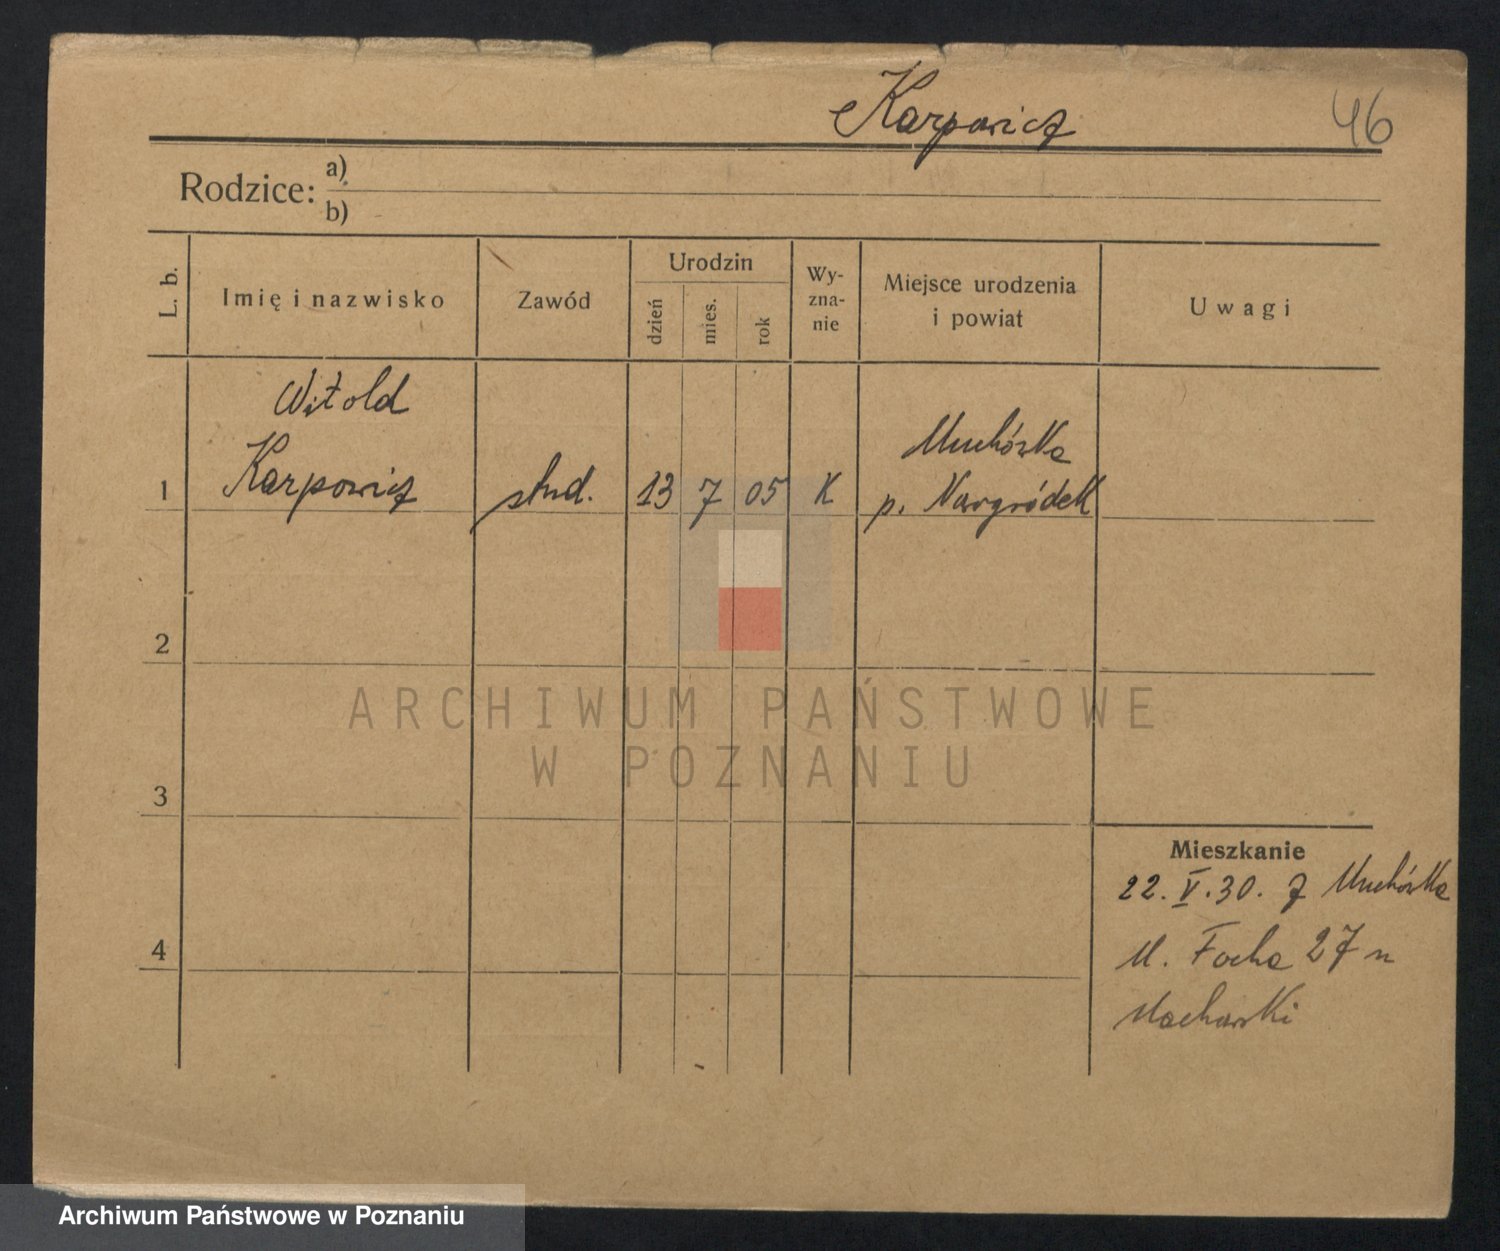 Karpowicz
46
Rodzice: a)
b)
L. b.
Imię i nazwisko
Zawód
Urodzin
dzień
mies.
rok
Wy-
zna-
nie
Miejsce urodzenia
i powiat
Uwagi
Witold
Karpowicz
1
stud.
13
7
05
K
Muchówka
p. Nowogródek
2
ARCHIWUM PAŃSTWOWE
W POZNANIU
3
4
Mieszkanie
22. V. 30. z Muchówka
ul. Focha 27 u
Archiwum Państwowe w Poznaniu